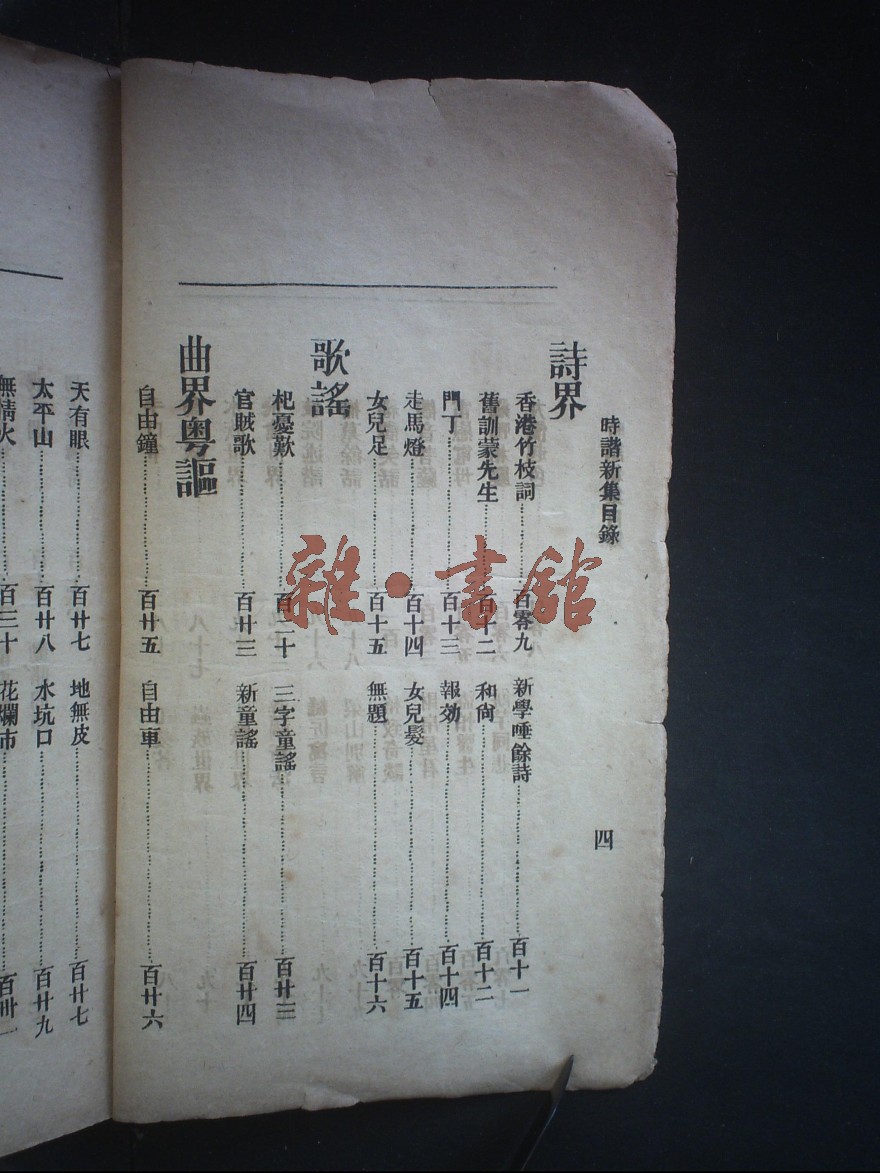 時諧新集目錄
四
詩界
香港竹枝詞 百零九 新學唾餘詩 百十一
舊訓蒙先生 百十二 和尙 百十二
門丁 百十三 報効 百十四
走馬燈 百十四 女兒髮 百十五
女兒足 百十五 無題 百十六
歌謠
杞憂歎 百二十 三字童謠 百廿三
官賊歌 百廿三 新童謠 百廿四
曲界粵謳
自由鐘 百廿五 自由車 百廿六
天有眼 百廿七 地無皮 百廿七
太平山 百廿八 水坑口 百廿九
無情火 百三十 花爛市 百卅一
雜·書舘